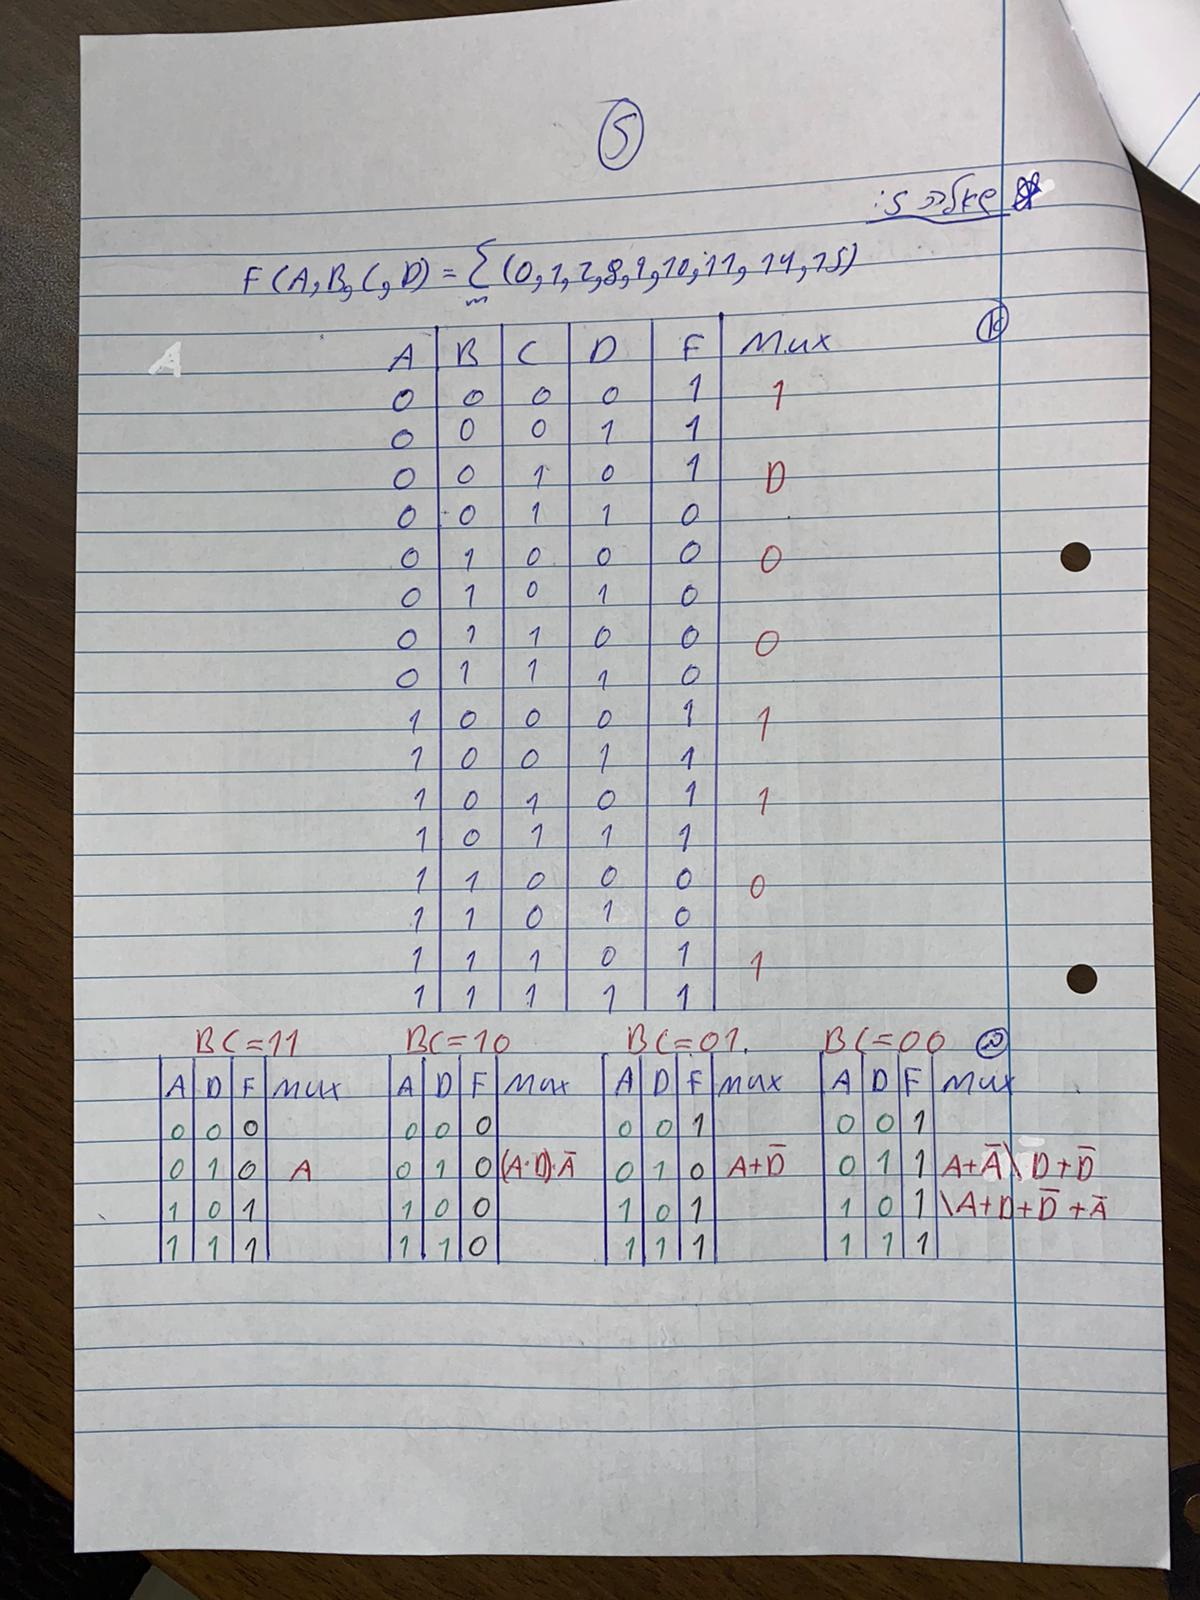 5
שאלה 5:
F(A,B,C,D) = Σm (0,1,2,8,9,10,11,14,15)
א
A B C D F Mux
0 0 0 0 1 1
0 0 0 1 1
0 0 1 0 1 D
0 0 1 1 0
0 1 0 0 0 0
0 1 0 1 0
0 1 1 0 0 0
0 1 1 1 0
1 0 0 0 1 1
1 0 0 1 1
1 0 1 0 1 1
1 0 1 1 1
1 1 0 0 0 0
1 1 0 1 0
1 1 1 0 1 1
1 1 1 1 1
ב
BC=00
A D F Mux
0 0 1
0 1 1 A+A̅\ D̅+D̅
1 0 1 \A+D+D̅+A̅
1 1 1
BC=01.
A D F Mux
0 0 1
0 1 0 A+D̅
1 0 1
1 1 1
BC=10
A D F Mux
0 0 0
0 1 0 (A·D)·A̅
1 0 0
1 1 0
BC=11
A D F Mux
0 0 0
0 1 0 A
1 0 1
1 1 1